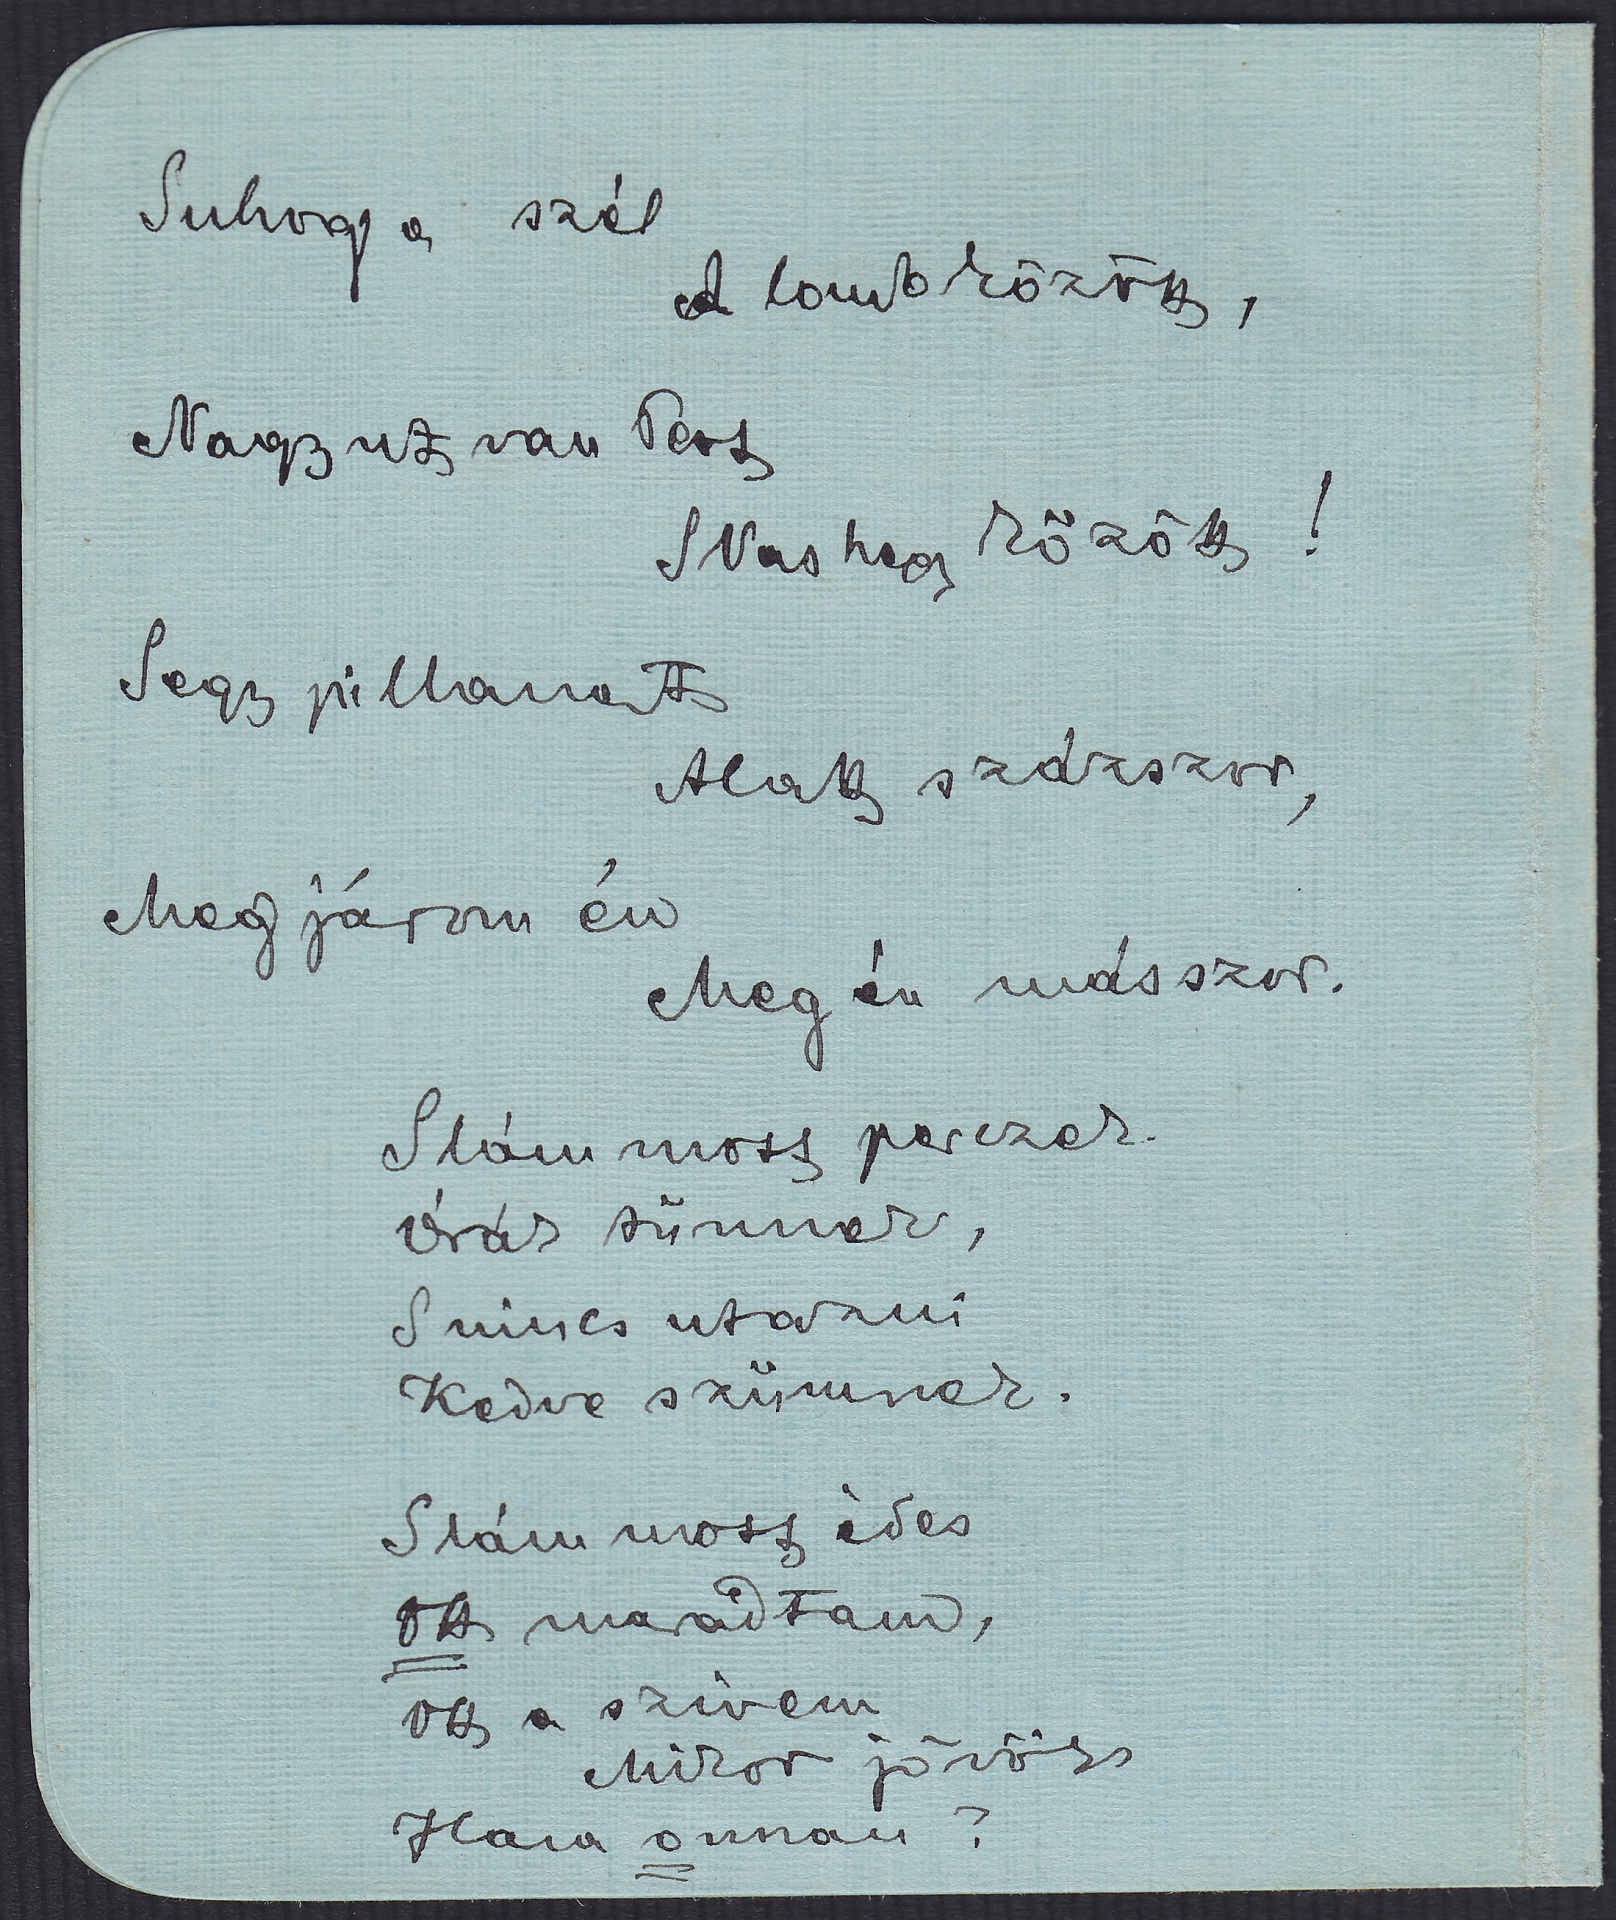 Suhog a szél
A lomb között,
Nagy ut van Pest
S Vashegy között!
S egy pillanatt
Alatt százszor,
Megjárom én
Meg én másszor.
S lám most perczek
Órák tünnek,
S nincs utazni
Kedve szűmnek.
S lám most èdes
Ott maradtam,
Ott a szivem
Mikor jövök
Haza onnan?